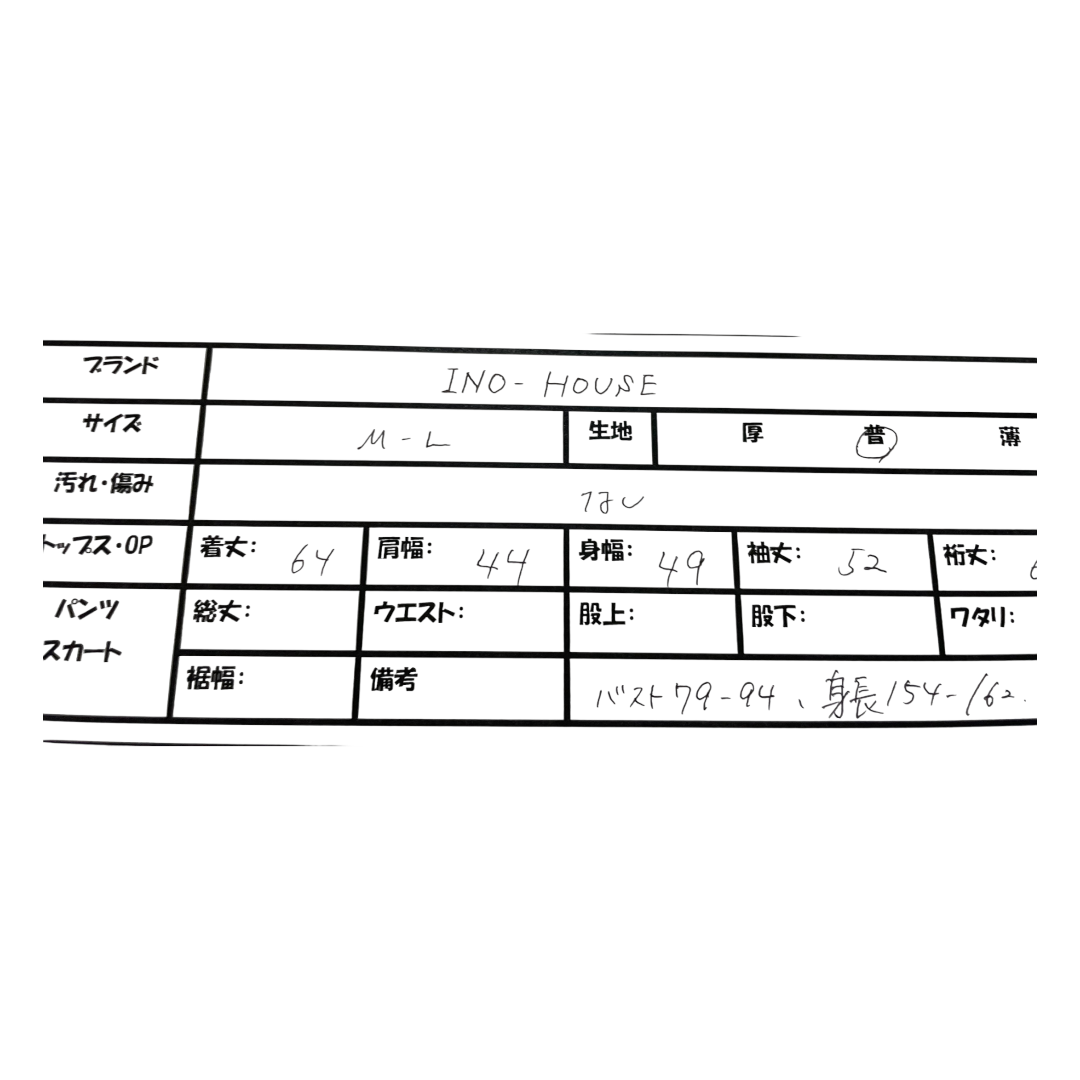 ブランド INO-HOUSE
サイズ M-L 生地 厚 普 薄
汚れ・傷み なし
トップス・OP 着丈: 64 肩幅: 44 身幅: 49 袖丈: 52 裄丈:
パンツ 総丈: ウエスト: 股上: 股下: ワタリ:
スカート
裾幅: 備考 バスト79-94、身長154-162.